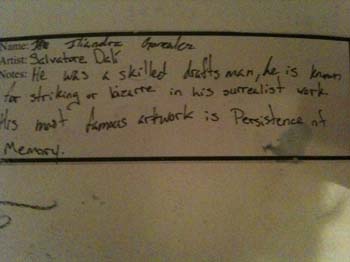 Name: Iliandra Gonzalez
Artist: Salvatore Dali
Notes: He was a skilled drafts man, he is known
for striking or bizarre in his surrealist work.
His most famous artwork is Persistence of
Memory.